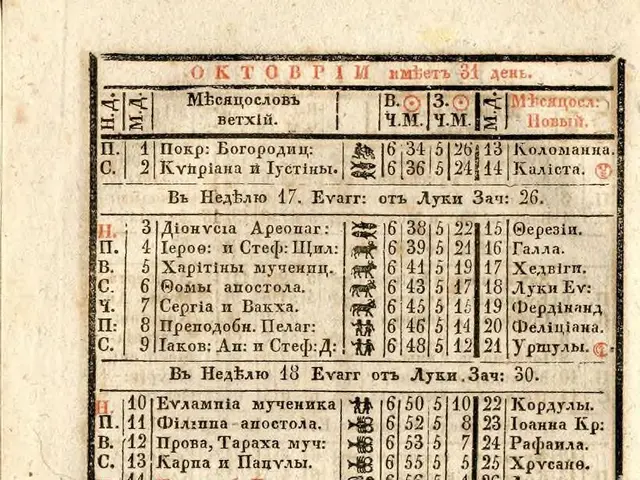 ОКТОВРІЙ имѣетъ 31 день.
Н.Д. М.Д. Мѣсяцословъ ветхій. В. Ч.М. З. Ч.М. М.Д. Мѣсяцосл: Новый.
П. 1 Покр: Богородиц: 6 34 5 26 13 Коломанна.
С. 2 Кѵпріана и Іустіны. 6 36 5 24 14 Каліста.
Въ Недѣлю 17. Еѵагг: отъ Луки Зач: 26.
Н. 3 Діонѵсіа Ареопаг: 6 38 5 22 15 Ѳерезіи.
П. 4 Іероѳ: и Стеф: Щил: 6 39 5 21 16 Галла.
В. 5 Харітіны мучениц. 6 41 5 19 17 Хедвіги.
С. 6 Ѳомы апостола. 6 43 5 17 18 Луки Еѵ:
Ч. 7 Сергіа и Вакха. 6 45 5 15 19 Фердінанд
П: 8 Преподобн. Пелаг: 6 46 5 14 20 Феліціана.
С. 9 Іаков: Ап: и Стеф: Д: 6 48 5 12 21 Уршулы.
Въ Недѣлю 18 Еѵагг отъ Луки Зач: 30.
Н. 10 Еѵлампіа мученика 6 50 5 10 22 Кордулы.
П. 11 Філіппа апостола. 6 52 5 8 23 Іоанна Кр:
В. 12 Прова, Тараха муч: 6 53 5 7 24 Рафаила.
С. 13 Карпа и Папулы. 6 55 5 5 25 Хрѵсанѳ.